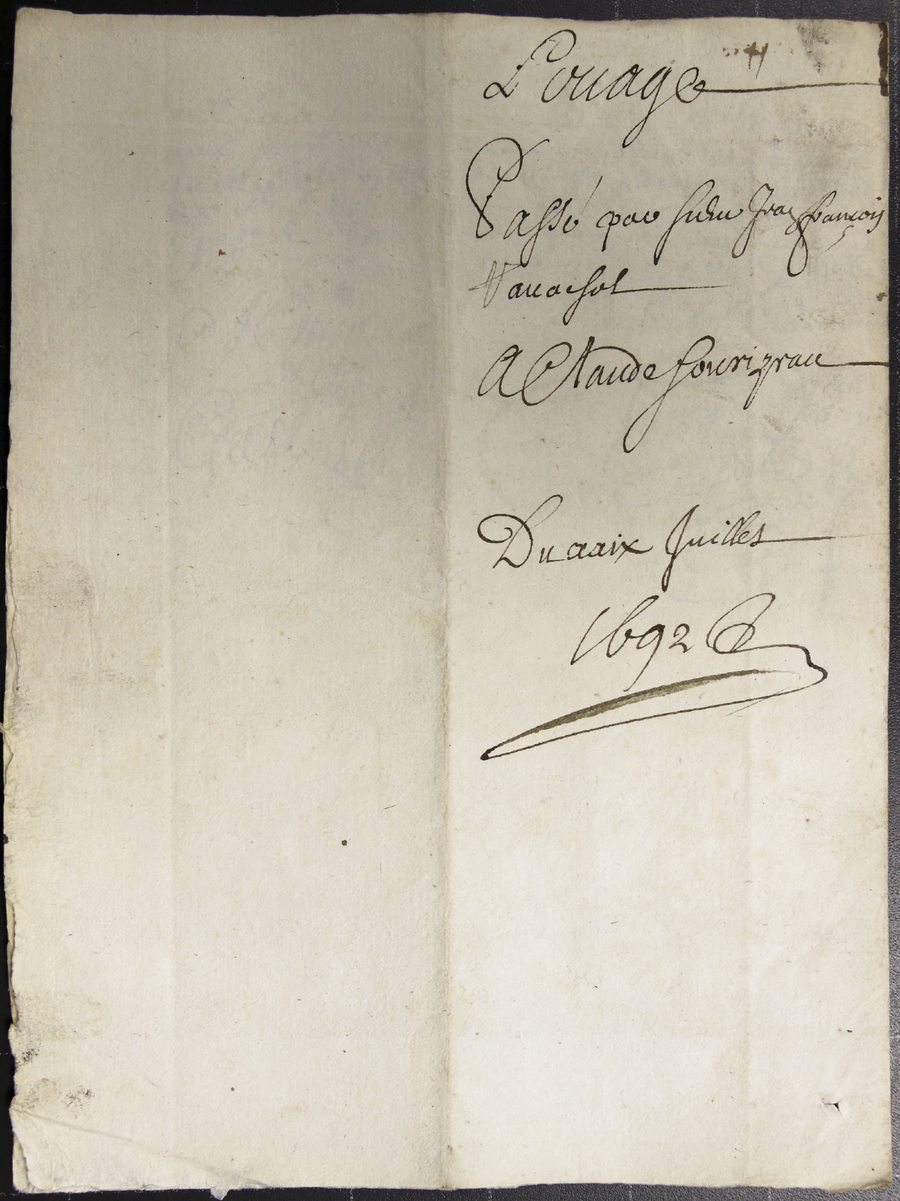 Louage
Passé par sieur Jean françois
Vauachot
A Claude Sourizeau
Du dix Juillet
1692